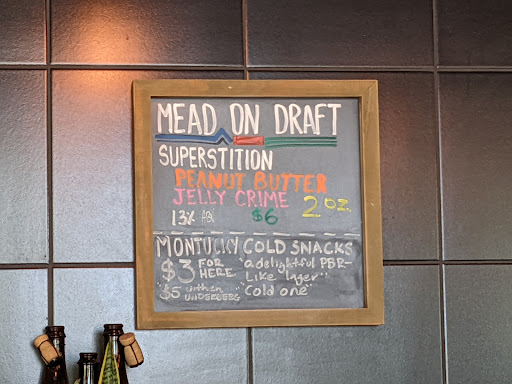 MEAD ON DRAFT
SUPERSTITION
PEANUT BUTTER
JELLY CRIME
2 oz.
13% ABV
$6
MONTUCKY COLD SNACKS
$3 FOR HERE
"a delightful PBR-
Like lager"
"Cold one"
$5 with an
UNDERBERG